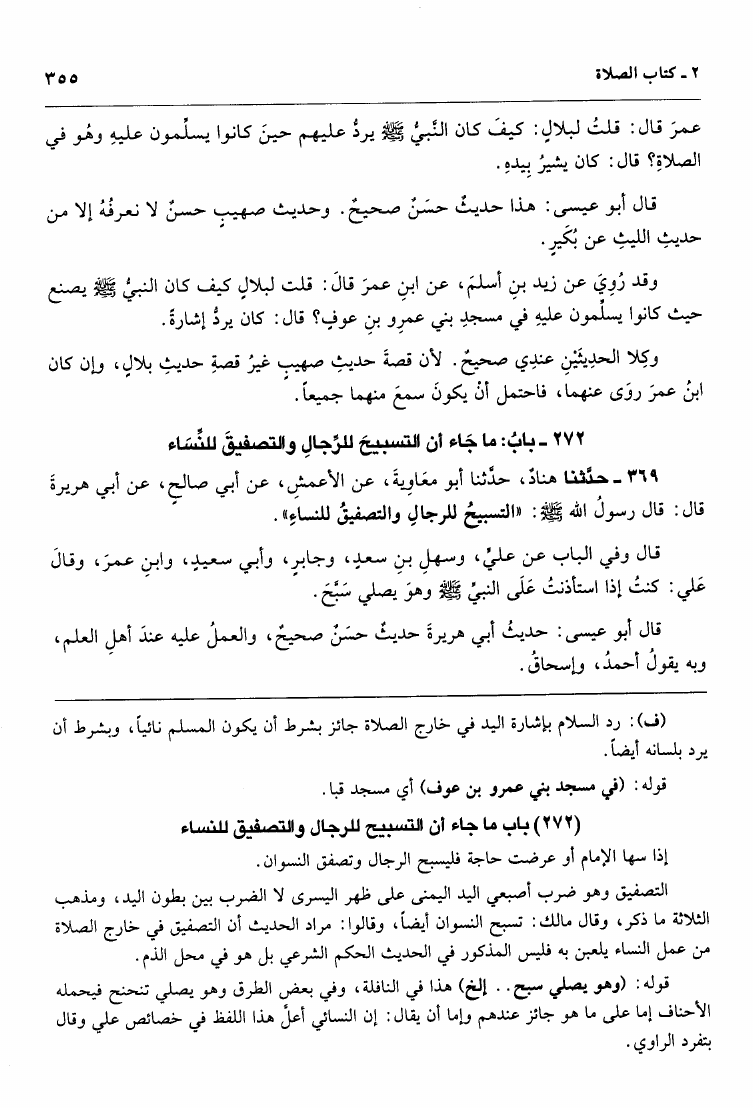 ٢ ـ كتاب الصلاة ٣٥٥
عمرَ قال: قلتُ لبلالٍ: كيفَ كان النَّبيُّ ﷺ يردُّ عليهم حينَ كانوا يسلِّمون عليهِ وهُو في
الصلاةِ؟ قال: كان يشيرُ بِيدهِ.
قال أبو عيسى: هذا حديثٌ حسَنٌ صحيحٌ. وحديث صهيبٍ حسنٌ لا نعرفُهُ إلا من
حديثِ الليثِ عن بُكَيرٍ.
وقد رُوِيَ عن زيد بنِ أسلمَ، عن ابنِ عمرَ قالَ: قلت لبلالٍ كيف كان النبيُّ ﷺ يصنع
حيث كانوا يسلِّمون عليهِ في مسجدِ بني عمرِو بنِ عوفٍ؟ قال: كان يردُّ إشارةً.
وكِلا الحديثَيْنِ عندِي صحيحٌ. لأن قصةَ حديثِ صهيبٍ غيرُ قصةِ حديثِ بلالٍ، وإن كان
ابنُ عمرَ روَى عنهما، فاحتمل أنْ يكونَ سمعَ منهما جميعاً.
٢٧٢ ـ بابُ: ما جَاء أن التسبيحَ للرِّجالِ والتصفيقَ للنِّسَاء
٣٦٩ ـ حدَّثنا هنادٌ، حدَّثنا أبو معَاوِيةَ، عن الأعمشِ، عن أبي صالحٍ، عن أبي هريرةَ
قال: قال رسولُ الله ﷺ: «التسبيحُ للرجالِ والتصفيقُ للنساءِ».
قال وفي الباب عن عليٍّ، وسهلِ بنِ سعدٍ، وجابرٍ، وأبي سعيدٍ، وابنِ عمرَ، وقالَ
عَلي: كنتُ إذا استأذنتُ عَلَى النبيِّ ﷺ وهوَ يصلي سَبَّحَ.
قال أبو عيسى: حديثُ أبي هريرةَ حديثٌ حسَنٌ صحيحٌ، والعملُ عليه عندَ أهلِ العلم،
وبه يقولُ أحمدُ، وإسحاقُ.
(ف): رد السلام بإشارة اليد في خارج الصلاة جائز بشرط أن يكون المسلم نائياً، وبشرط أن
يرد بلسانه أيضاً.
قوله: (في مسجد بني عمرو بن عوف) أي مسجد قبا.
(٢٧٢) باب ما جاء أن التسبيح للرجال والتصفيق للنساء
إذا سها الإمام أو عرضت حاجة فليسبح الرجال وتصفق النسوان.
التصفيق وهو ضرب أصبعي اليد اليمنى على ظهر اليسرى لا الضرب بين بطون اليد، ومذهب
الثلاثة ما ذكر، وقال مالك: تسبح النسوان أيضاً، وقالوا: مراد الحديث أن التصفيق في خارج الصلاة
من عمل النساء يلعبن به فليس المذكور في الحديث الحكم الشرعي بل هو في محل الذم.
قوله: (وهو يصلي سبح.. إلخ) هذا في النافلة، وفي بعض الطرق وهو يصلي تنحنح فيحمله
الأحناف إما على ما هو جائز عندهم وإما أن يقال: إن النسائي أعلَّ هذا اللفظ في خصائص علي وقال
بتفرد الراوي.